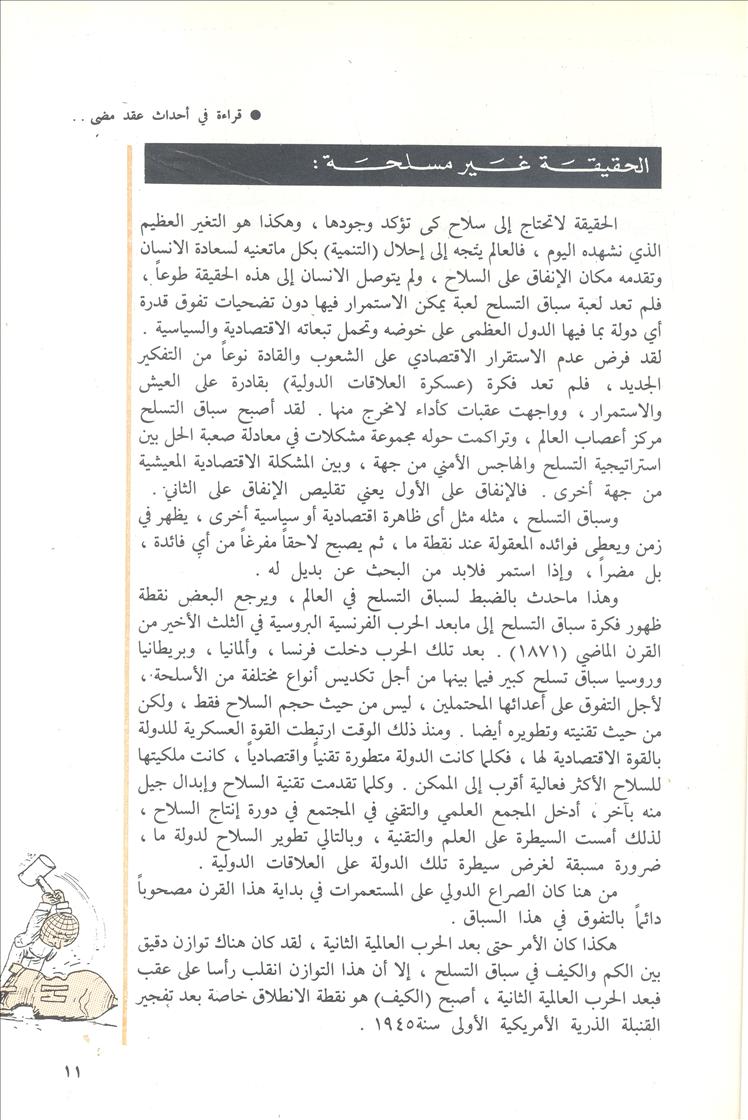 ● قراءة في أحداث عقد مضى ..
الحقيقة غير مسلحة :
الحقيقة لاتحتاج إلى سلاح كى تؤكد وجودها ، وهكذا هو التغير العظيم
الذي نشهده اليوم ، فالعالم يتجه إلى إحلال (التنمية) بكل ماتعنيه لسعادة الانسان
وتقدمه مكان الإنفاق على السلاح ، ولم يتوصل الانسان إلى هذه الحقيقة طوعاً ،
فلم تعد لعبة سباق التسلح لعبة يمكن الاستمرار فيها دون تضحيات تفوق قدرة
أي دولة بما فيها الدول العظمى على خوضه وتحمل تبعاته الاقتصادية والسياسية .
لقد فرض عدم الاستقرار الاقتصادي على الشعوب والقادة نوعاً من التفكير
الجديد ، فلم تعد فكرة (عسكرة العلاقات الدولية) بقادرة على العيش
والاستمرار ، وواجهت عقبات كأداء لامخرج منها . لقد أصبح سباق التسلح
مركز أعصاب العالم ، وتراكمت حوله مجموعة مشكلات في معادلة صعبة الحل بين
استراتيجية التسلح والهاجس الأمني من جهة ، وبين المشكلة الاقتصادية المعيشية
من جهة أخرى . فالإنفاق على الأول يعني تقليص الإنفاق على الثاني .
وسباق التسلح ، مثله مثل أى ظاهرة اقتصادية أو سياسية أخرى ، يظهر في
زمن ويعطى فوائده المعقولة عند نقطة ما ، ثم يصبح لاحقاً مفرغاً من أي فائدة ،
بل مضراً ، وإذا استمر فلابد من البحث عن بديل له .
وهذا ماحدث بالضبط لسباق التسلح في العالم ، ويرجع البعض نقطة
ظهور فكرة سباق التسلح إلى مابعد الحرب الفرنسية البروسية في الثلث الأخير من
القرن الماضي (١٨٧١) . بعد تلك الحرب دخلت فرنسا ، وألمانيا ، وبريطانيا
وروسيا سباق تسلح كبير فيما بينها من أجل تكديس أنواع مختلفة من الأسلحة ،
لأجل التفوق على أعدائها المحتملين ، ليس من حيث حجم السلاح فقط ، ولكن
من حيث تقنيته وتطويره أيضا . ومنذ ذلك الوقت ارتبطت القوة العسكرية للدولة
بالقوة الاقتصادية لها ، فكلما كانت الدولة متطورة تقنياً واقتصادياً ، كانت ملكيتها
للسلاح الأكثر فعالية أقرب إلى الممكن . وكلما تقدمت تقنية السلاح وإبدال جيل
منه بآخر ، أدخل المجمع العلمي والتقني في المجتمع في دورة إنتاج السلاح ،
لذلك أمست السيطرة على العلم والتقنية ، وبالتالي تطوير السلاح لدولة ما ،
ضرورة مسبقة لغرض سيطرة تلك الدولة على العلاقات الدولية .
من هنا كان الصراع الدولي على المستعمرات في بداية هذا القرن مصحوباً
دائماً بالتفوق في هذا السباق .
هكذا كان الأمر حتى بعد الحرب العالمية الثانية ، لقد كان هناك توازن دقيق
بين الكم والكيف في سباق التسلح ، إلا أن هذا التوازن انقلب رأسا على عقب
فبعد الحرب العالمية الثانية ، أصبح (الكيف) هو نقطة الانطلاق خاصة بعد تفجير
القنبلة الذرية الأمريكية الأولى سنة ١٩٤٥ .
١١